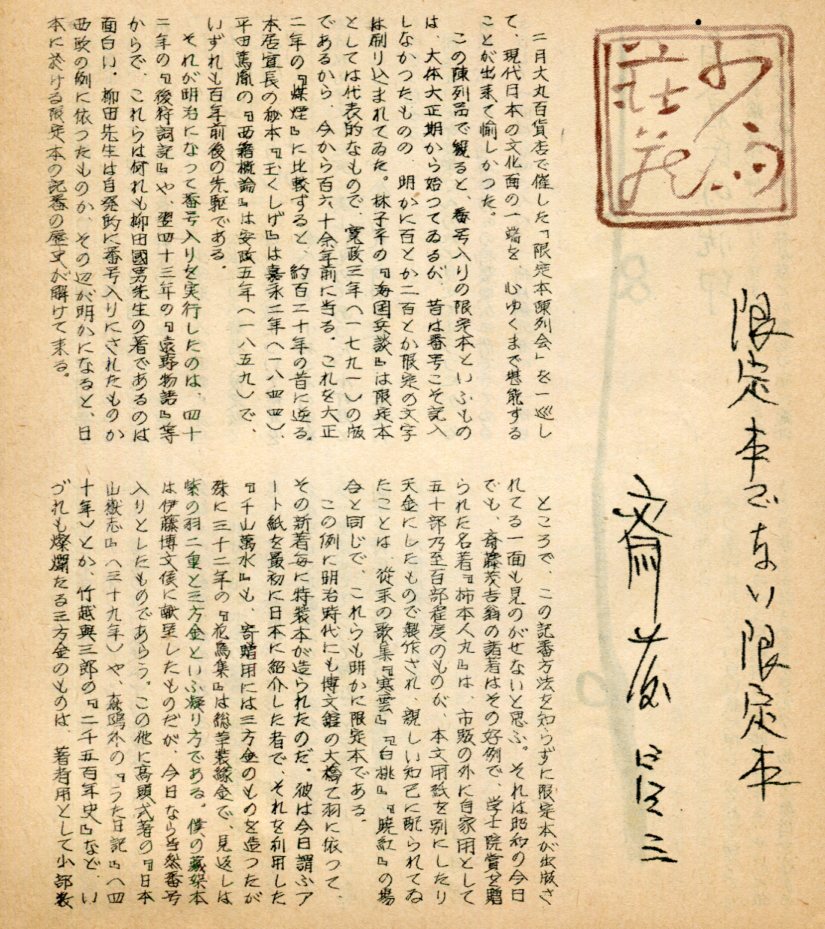 限定本でない限定本
斎藤昌三
二月大丸百貨店で催した『限定本陳列会』を一巡し
て、現代日本の文化面の一端を 心ゆくまで堪能する
ことが出来て愉しかつた。
この陳列品で観ると、番号入りの限定本といふもの
は、大体大正期から始つてゐるが、昔は番号こそ記入
しなかつたものの 明かに百とか二百とか限定の文字
は刷り込まれてゐた。林子平の『海国兵談』は限定本
としては代表的なもので、寛政三年(一七九一)の版
であるから、今から百六十余年前に当る。これを大正
二年の『煤煙』に比較すると、約百二十年の昔に遡る。
本居宣長の秘本『玉くしげ』は嘉永二年(一八四四)、
平田篤胤の『西籍概論』は安政五年(一八五九)で、
いずれも百年前後の先駆である。
それが明治になって番号入りを実行したのは、四十
二年の『後狩詞記』や、翌四十三年の『遠野物語』等
からで、これらは何れも柳田國男先生の著であるのは
面白い。柳田先生は自発的に番号入りにされたものか
西欧の例に依つたものか、その辺が明かになると、日
本に於ける限定本の記番の歴史が解けて来る。
ところで、この記番方法を知らずに限定本が出版さ
れてる一面も見のがせないと思ふ。それは昭和の今日
でも、斎藤茂吉翁の著者はその好例で、学士院賞を贈
られた名著『柿本人丸』は、市販の外に自家用として
五十部乃至百部程度のものが、本文用紙を別にしたり
天金にしたもので製作され、親しい知己に配られてゐ
たことは、従来の歌集『寒雲』『白桃』『暁紅』の場
合と同じで、これらも明かに限定本である。
この例に明治時代にも博文館の大橋乙羽に依つて、
その新著毎に特装本が造られたのだ。彼は今日謂ふア
ート紙を最初に日本に紹介した者で、それを利用した
『千山萬水』も、寄贈用には三方金のものを造つたが
殊に三十二年の『花鳥集』は総革装緑金で、見返しは
紫の羽二重と三方金といふ凝り方である。僕の蔵架本
は伊藤博文侯に献呈したものだが、今日なら当然番号
入りとしたものであらう。この他に高頭式著の『日本
山嶽志』(三十九年)や、森鴎外の『うた日記』(四
十年)とか、竹越與三郎の『二千五百年史』など、い
づれも燦爛たる三方金のものは 著者用として小部裝